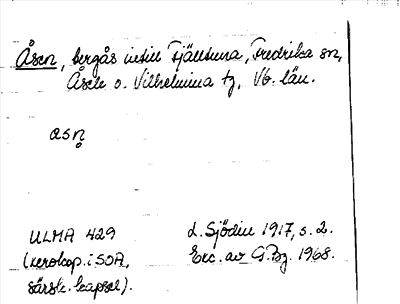 Åsen, bergås intill Fjälltuna, Fredrika sn,
Åsele o. Vilhelmina tg, Vb. län.
asn̥
ULMA 429
(xerokop. i SOA,
särsk. kapsel).
d. Sjödin 1917, s. 2.
Exc. av G.Bz. 1968.